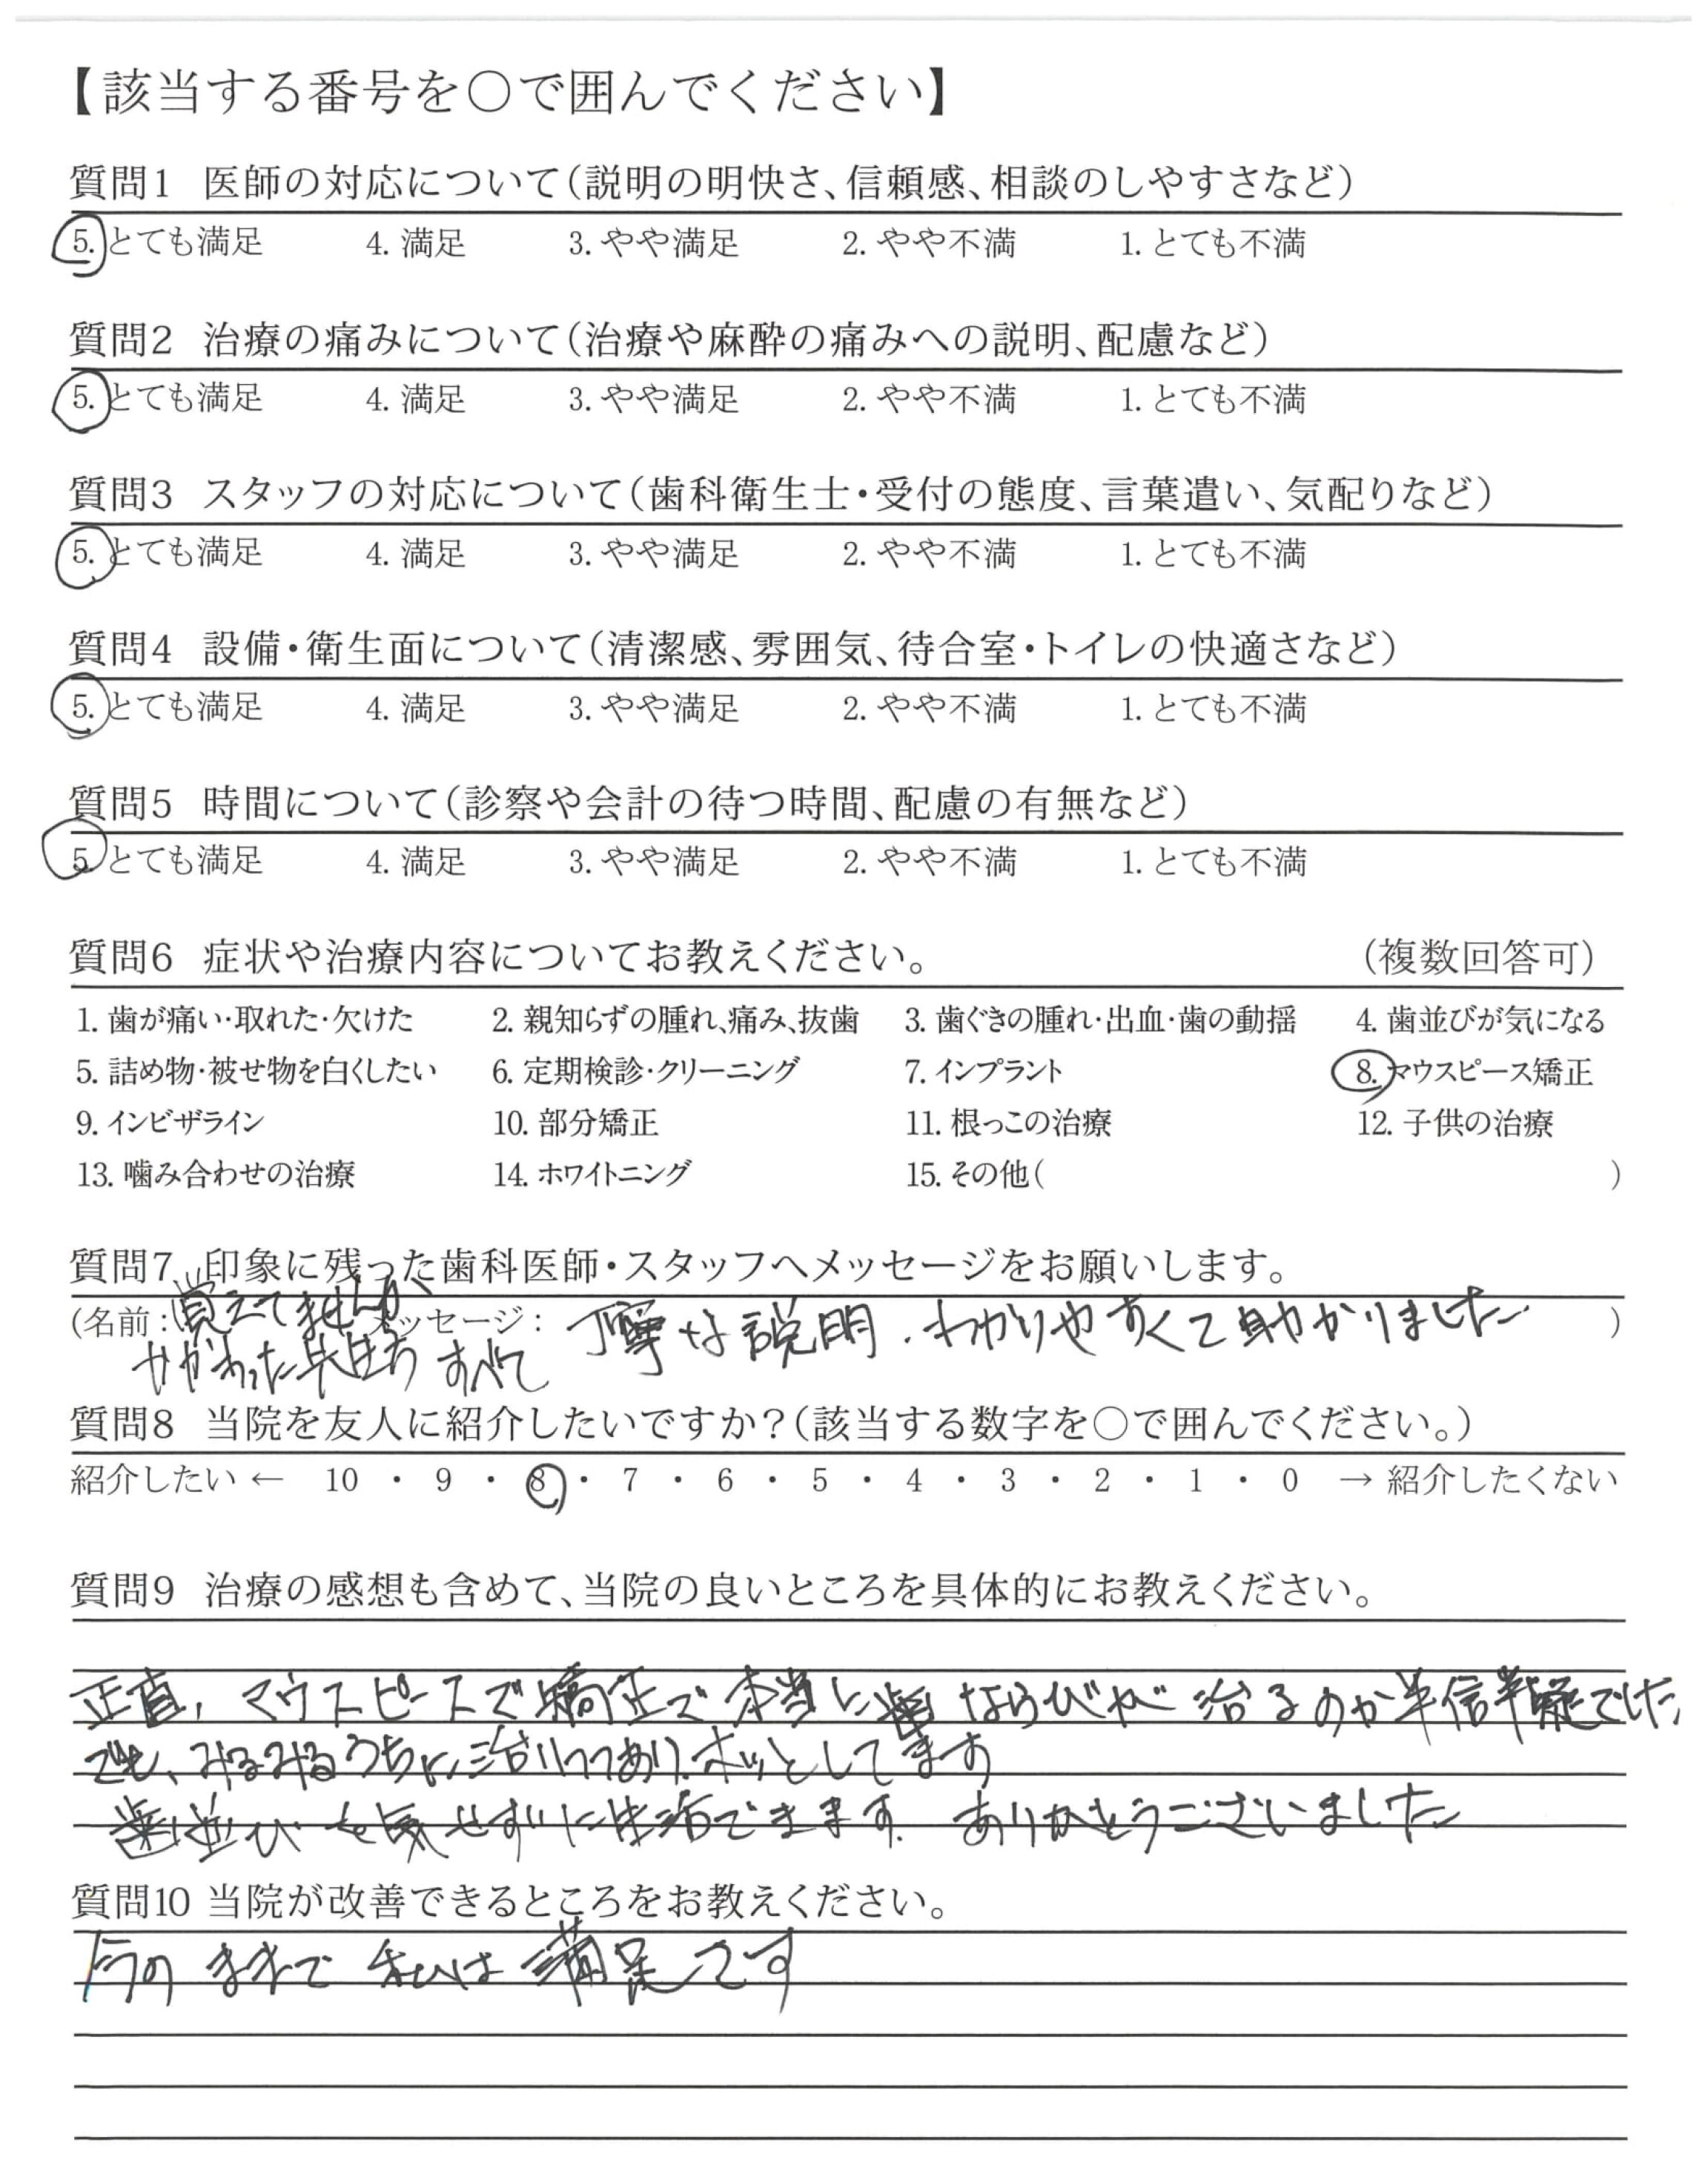 【該当する番号を○で囲んでください】
質問1 医師の対応について(説明の明快さ、信頼感、相談のしやすさなど)
5. とても満足 4. 満足 3. やや満足 2. やや不満 1. とても不満
質問2 治療の痛みについて(治療や麻酔の痛みへの説明、配慮など)
5. とても満足 4. 満足 3. やや満足 2. やや不満 1. とても不満
質問3 スタッフの対応について(歯科衛生士・受付の態度、言葉遣い、気配りなど)
5. とても満足 4. 満足 3. やや満足 2. やや不満 1. とても不満
質問4 設備・衛生面について(清潔感、雰囲気、待合室・トイレの快適さなど)
5. とても満足 4. 満足 3. やや満足 2. やや不満 1. とても不満
質問5 時間について(診察や会計の待つ時間、配慮の有無など)
5. とても満足 4. 満足 3. やや満足 2. やや不満 1. とても不満
質問6 症状や治療内容についてお教えください。 (複数回答可)
1. 歯が痛い・取れた・欠けた 2. 親知らずの腫れ、痛み、抜歯 3. 歯ぐきの腫れ・出血・歯の動揺 4. 歯並びが気になる
5. 詰め物・被せ物を白くしたい 6. 定期検診・クリーニング 7. インプラント 8. マウスピース矯正
9. インビザライン 10. 部分矯正 11. 根っこの治療 12. 子供の治療
13. 噛み合わせの治療 14. ホワイトニング 15. その他( )
質問7 印象に残った歯科医師・スタッフへメッセージをお願いします。
(名前: 覚えてませんが メッセージ: 丁寧な説明.わかりやすくて助かりました )
かかわった先生方 すべて
質問8 当院を友人に紹介したいですか?(該当する数字を○で囲んでください。)
紹介したい ← 10 ・ 9 ・ 8 ・ 7 ・ 6 ・ 5 ・ 4 ・ 3 ・ 2 ・ 1 ・ 0 → 紹介したくない
質問9 治療の感想も含めて、当院の良いところを具体的にお教えください。
正直, マウスピースで矯正で本当に歯ならびが治るのか半信半疑でした,
でも、みるみるうちに治りつつあり.ホッとしてます
歯並びを気せずに生活できます. ありがとうございました
質問10 当院が改善できるところをお教えください。
今のままで 私は満足です